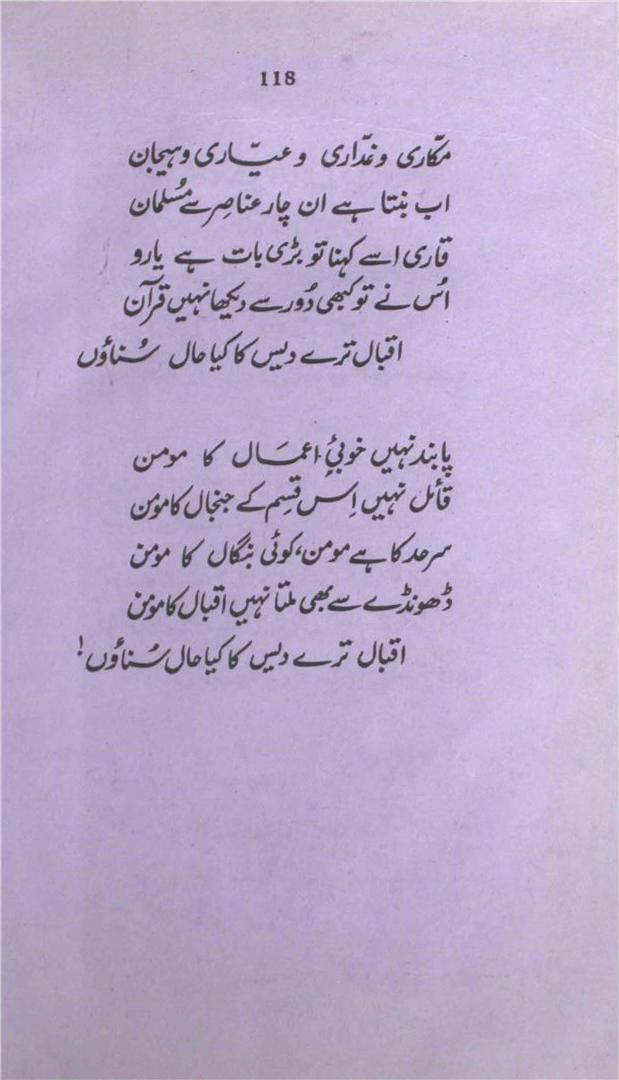 118
مکّاری و غدّاری و عیّاری و ہیجان
اب بنتا ہے ان چار عناصِر سے مُسلمان
قاری اسے کہنا تو بڑی بات ہے یارو
اُس نے تو کبھی دُور سے دیکھا نہیں قرآن
اقبال ترے دیس کا کیا حال سُناؤں
پابند نہیں خوبیِٔ اعمَال کا مومن
قائل نہیں اِس قسِم کے جنجال کا مومن
سرحد کا ہے مومن، کوئی بنگال کا مومن
ڈھونڈے سے بھی ملتا نہیں اقبال کا مومن
اقبال ترے دیس کا کیا حال سُناؤں!